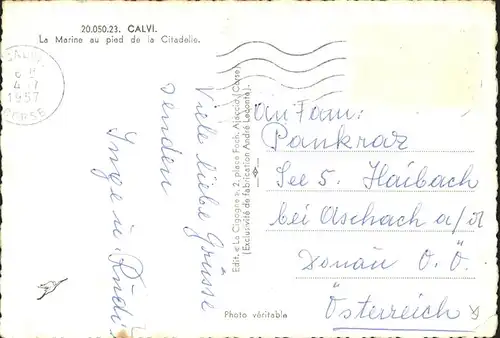 20.050.23. CALVI.
La Marine au pied de la Citadelle.
CALVI
6 H
4 - 7
1957
CORSE
Viele liebe Grüsse
senden
Inge u. Rudi
Edit. « La Cigogne », 2, place Foch, Ajaccio (Corse)
(Exclusivité de fabrication André Leconte).
An Fam:
Pankraz
See 5. Haibach
bei Aschach a/d
Donau O. Ö.
Österreich
Photo véritable